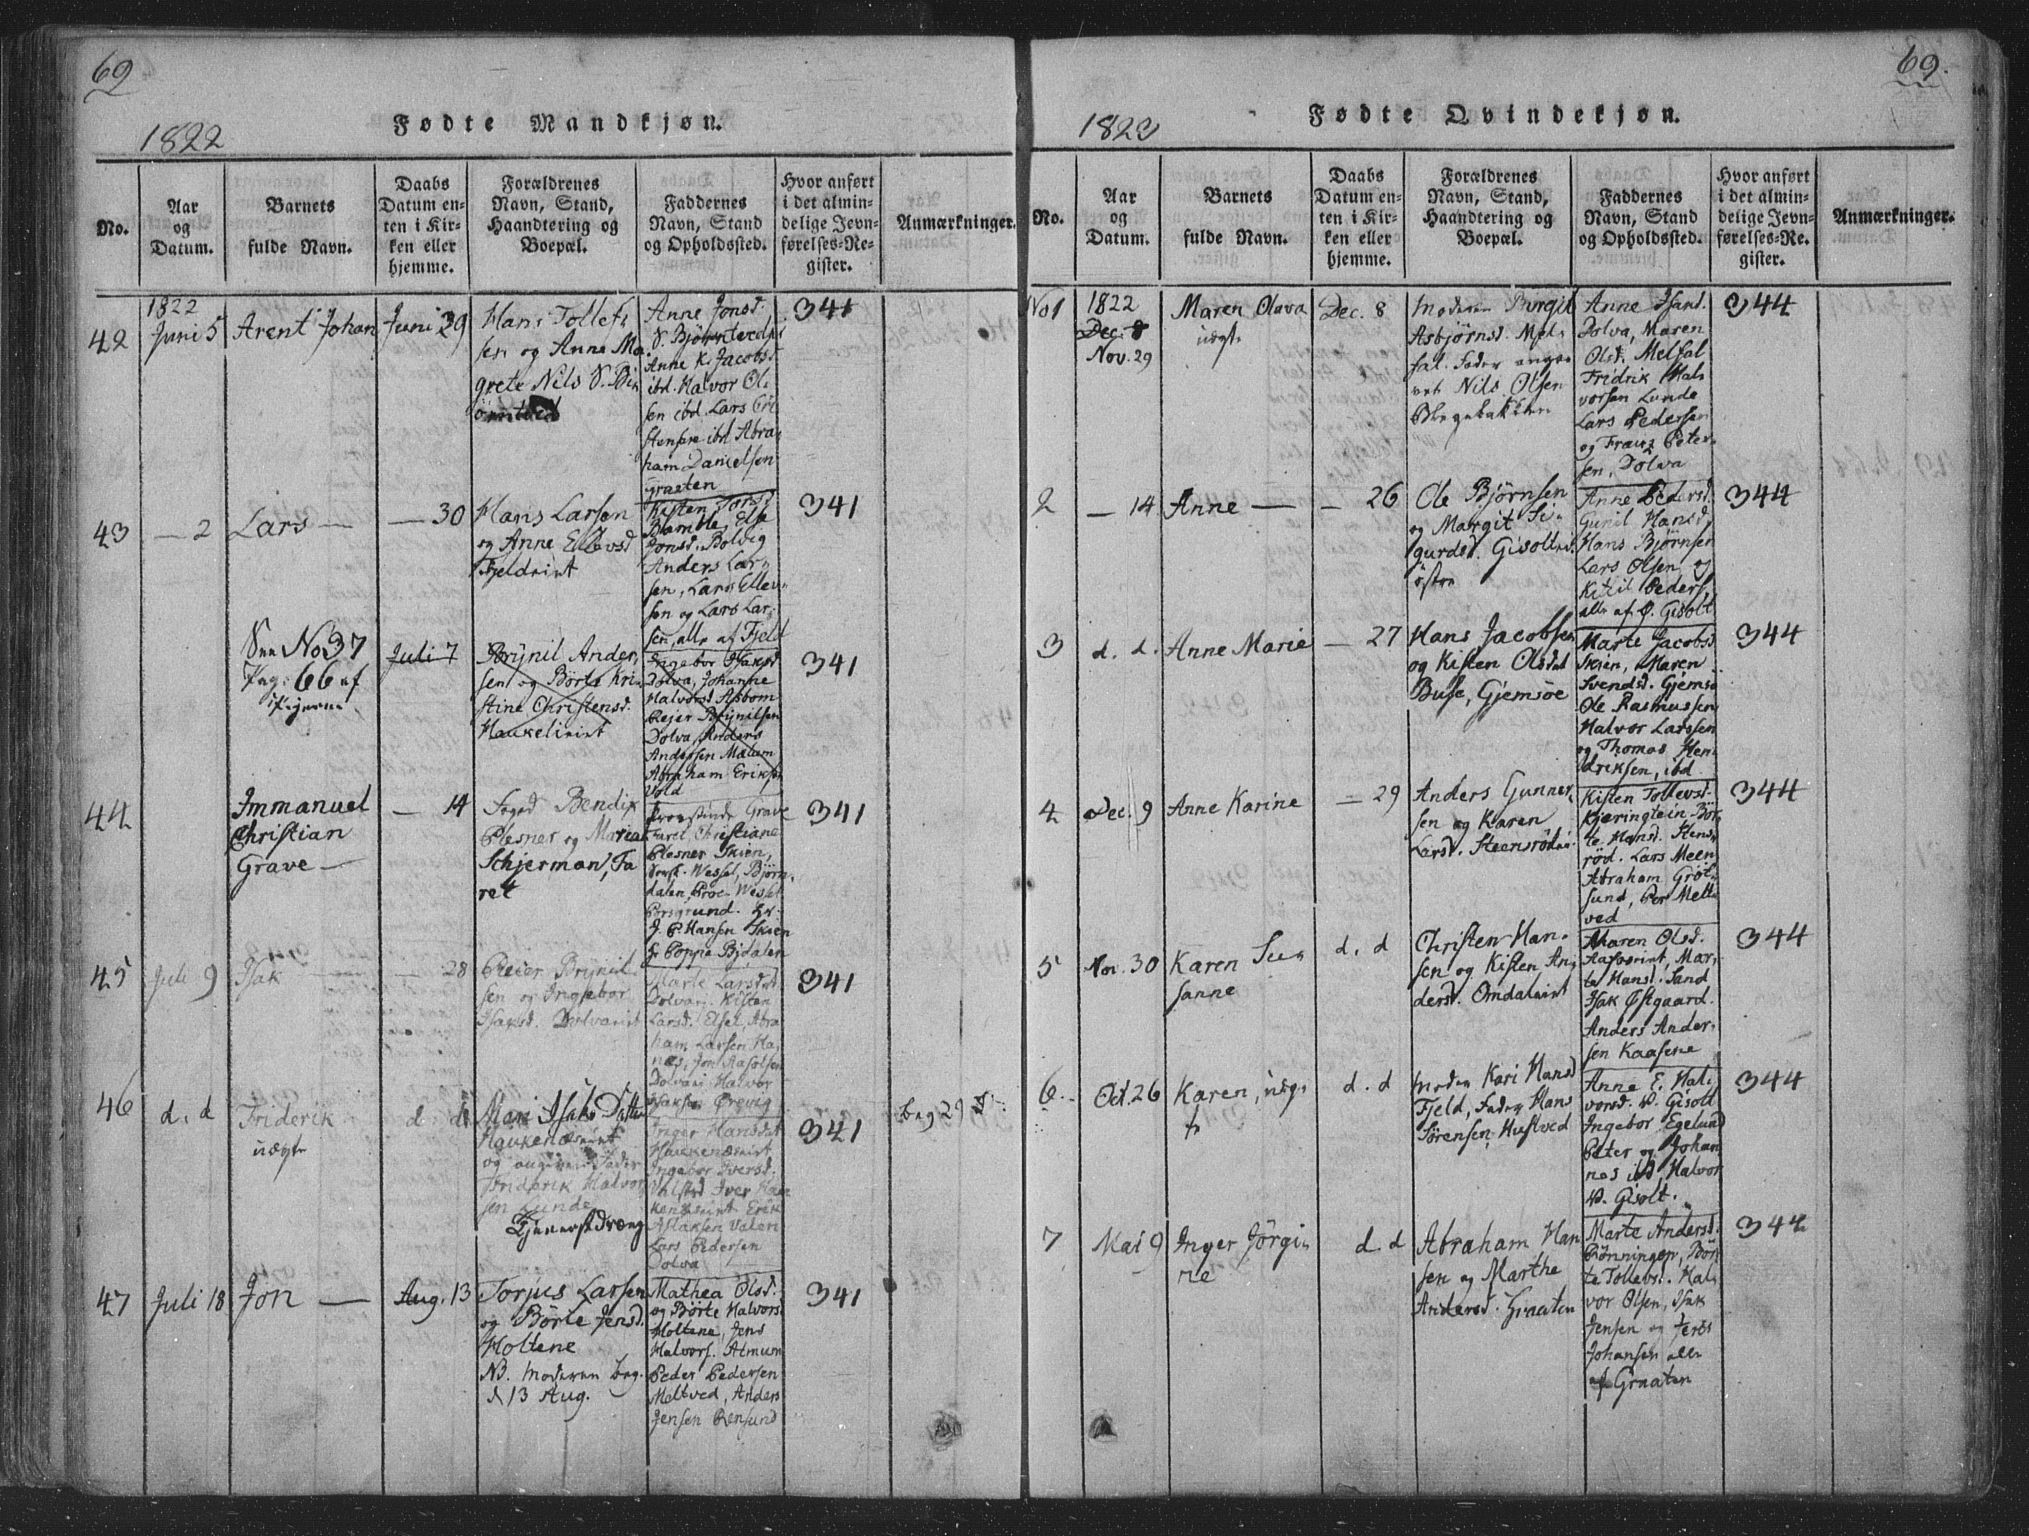 69
Fødte Mandkjøn.
1822
No.
Aar
og
Datum.
Barnets
fulde Navn.
Daabs
Datum en-
ten i Kir-
ken eller
hjemme.
Forældrenes
Navn, Stand,
Haandtering og
Boepæl.
Faddernes
Navn, Stand
og Opholdssted.
Hvor anført
i det almin-
delige Jevn-
førelses-Re-
gister.
Anmærkninger.
1822
42
Juni 5
Arent Johan
Juni 29
Hans Tollef-
sen og Anne Ma-
grete Nils
Anne Jonsd.
Anne K. Jacobsd
ibd. Halvor Ol-
sen ibd. Lars
ibd. Abra-
ham Danielsen
Graaten
341
43
— 2
Lars —
— 30
Hans Larsen
og Anne Ellevsd
Fjeldeint
Kisten
Blamble, Else
Jonsd. Bolvig
Anders Lar-
sen, Lars Ellev-
sen og Lars Lar-
sen, alle af Fjeld
341
See No 37
Pag: 66 af
Juli 7
Brynil Ander-
sen og Börte Kri-
stine Christensd.
Haukelieint
Ingebor Isaksd
Dolva, Johanne
Halvorsd
Peier Brynilsen
Dolva, Anders
Andersen Mælum
Abraham Eriksen
Vold
341
44
Immanuel
Christian
Grave —
— 14
Foged Bendix
Plesner og Maria
Schjerman, Fa
ret
Provstinde Grave
Faret Christiane
Plesner Skien,
Wessel, Björn-
dalen, Proc. Wessel
Porsgrund. Hr.
J. P. Hansen Skien
J. Poppe Bjdalen
341
45
Juli 9
Isak
— 28
Peier Brynil
sen og Ingebor
Isaksd. Dolvaeint
Marte Larsdat
Dolvaei. Kisten
Larsd. Elset, Abra
ham Larsen Ha-
næs, Jon Aasolsen
Dolvaei Halvor
Isaksen Örevig
341
46
d. d
Friderik
uægte
d. d.
Mari Isaks Datter
Haukenæseint
og angiven Fader
Friderik Halvor
sen Lunde
Tjenestdræng
Inger Hansdat
Haukenæseint
Ingebor Iversd.
Valsted Iver Hau
kenæseint Erik
Aslaksen Valen
Lars Pedersen
Dolva
341
beg 29 d:
47
Juli 18
Jon —
Aug. 13
Torjus Larsen
og Börte Jensd.
Holtene
NB. Moderen beg.
d 13 Aug.
Mathea Olsd.
og Börte Halvors
Holtene, Jens
Halvors. Atmum
Peder Pedersen
Meltved, Anders
Jensen Rensund
341
69.
Fødte Qvindekjøn.
1823
No.
Aar
og
Datum.
Barnets
fulde Navn.
Daabs
Datum en-
ten i Kir-
ken eller
hjemme.
Forældrenes
Navn, Stand,
Haandtering og
Boepæl.
Faddernes
Navn, Stand
og Opholdssted.
Hvor anført
i det almin-
delige Jevn-
førelses-Re-
gister.
Anmærkninger.
No 1
1822
Dec. 8
Nov. 29
Maren Olava
uægte
Dec. 8
Moderen Birgit
Asbjørnsd. Mel-
fal. Fader angi-
vet Nils Olsen
Blegebakken
Anne Isaksd.
Dolva, Maren
Olsd. Melfal
Fridrik Hal-
vorsen Lunde
Lars Pedersen
og Franz Peter-
sen, Dolva
344
2
— 14
Anne —
— 26
Ole Bjørnsen
og Margit Si-
gurdsd. Gisolt
östre
Anne Pedersd.
Gunil Hansd,
Hans Bjørnsen
Lars Olsen og
Kittil Peders,
alle af Ö. Gisolt
344
3
d. d.
Anne Marie
— 27
Hans Jacobsen
og Kisten Olsdat
Buse, Gjemsöe
Marte Jacobsd
Skien, Maren
Svendsd. Gjemsö
Ole Rasmussen
Halvor Larssen
og Thomas Hen-
driksen, ibd
344
4
Dec. 9
Anne Karine
— 29
Anders Gunner
sen og Karen
Larsd. Steensröd
Kisten Tollevsd.
Kjeringtein Bör-
te Hansd. Stens-
röd. Lars Meen
Abraham Grot-
sund, Per Melt-
ved
344
5
Nov. 30
Karen Su-
sanne
d. d
Christen Han-
sen og Kisten An-
dersd. Omdaleint
Maren Olsd.
Mar-
te Hansd. Sand
Isak Østgaard.
Anders Ander-
sen Kaasene
344
6
Oct. 26
Karen, uæg-
te
d. d
Moder Kari Hansd
Fjeld, Fader Hans
Sörensen Hustved
Anne E. Hal-
vorsd. V. Gisolt
Ingebor Egelund
Peter og Johan
nes ibd, Halvor
V. Gisolt.
344
7
Mai 9
Inger Jörgi-
ne
d. d
Abraham Han
sen og Marthe
Andersd. Graaten
Marte Andersd.
Rönningen, Bör-
te Tollevsd. Hal-
vor Olsen, Isak
Jensen og Jens
Johansen alle
af Graaten
344